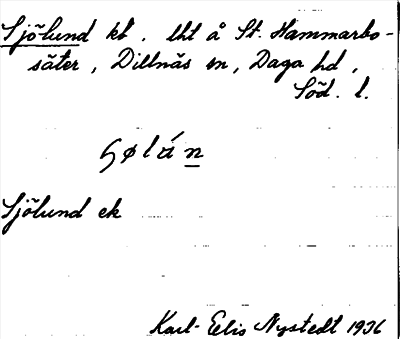 Sjölund kt. lht å St. Hammarbo-
säter, Dillnäs sn, Daga hd,
Söd. l.
Sjölund ek
Karl-Eelis Nystedt 1936